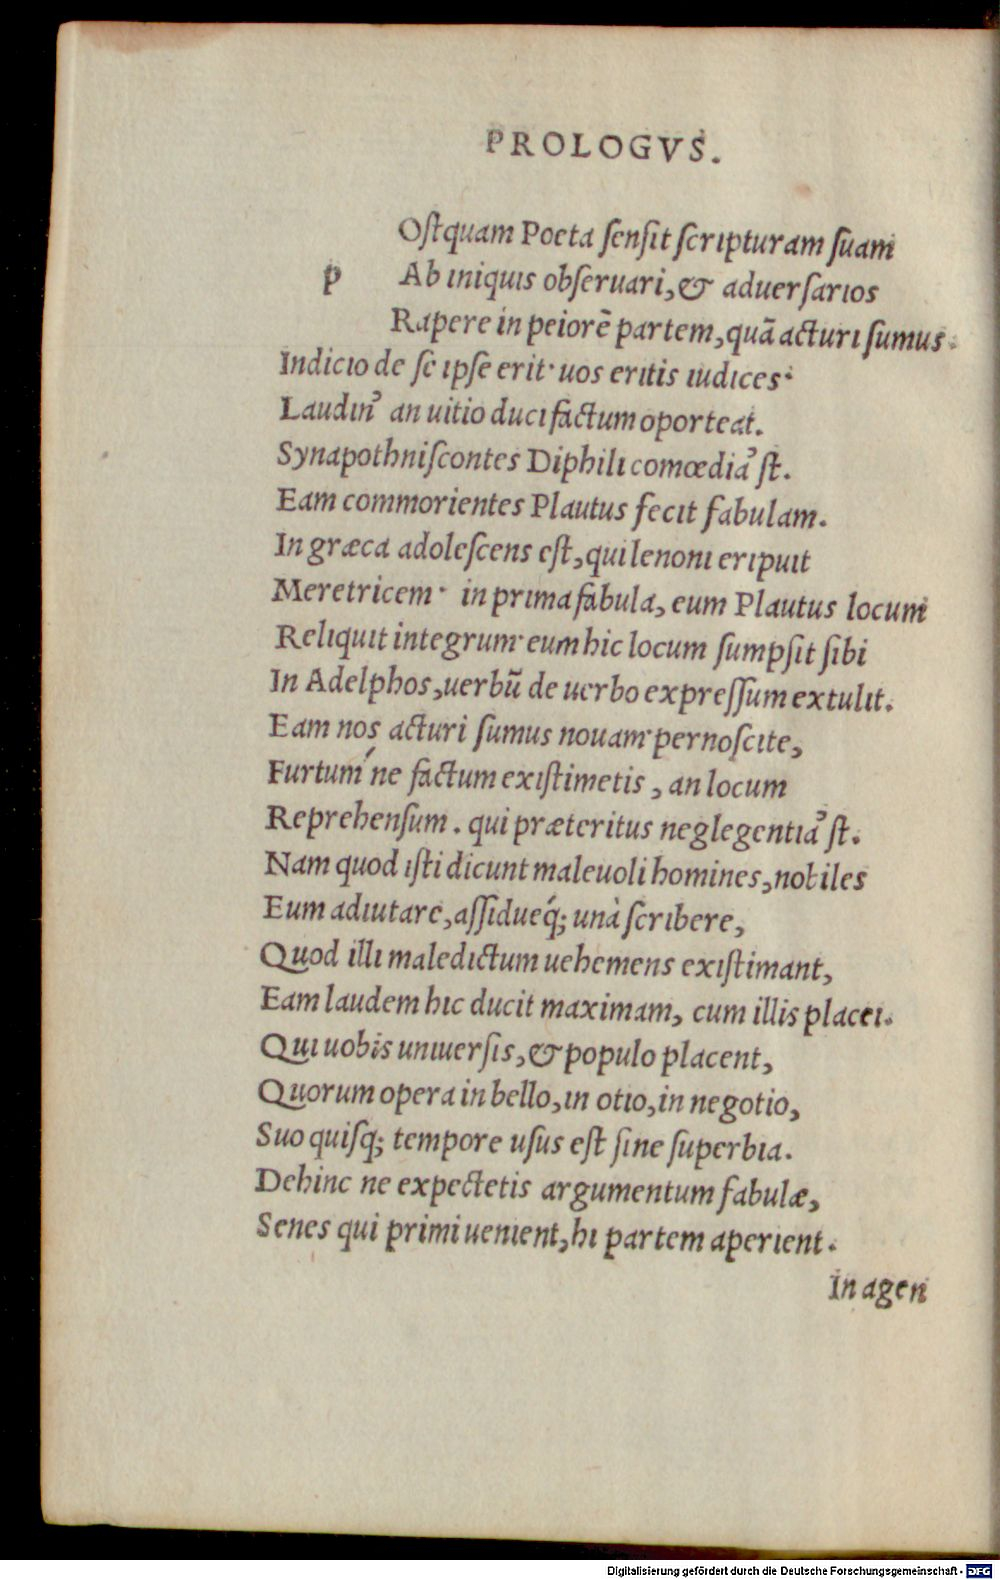 PROLOGVS.
Oſtquam Poeta ſenſit ſcripturam ſuam
p Ab iniquis obſeruari, & aduerſarios
Rapere in peiorē partem, quā acturi ſumus.
Indicio de ſe ipſe erit· uos eritis iudices·
Laudin' an uitio duci factum oporteat.
Synapothniſcontes Diphili comœdia'ſt.
Eam commorientes Plautus fecit fabulam.
In græca adoleſcens eſt, qui lenoni eripuit
Meretricem· in prima fabula, eum Plautus locum
Reliquit integrum· eum hic locum ſumpſit ſibi
In Adelphos, uerbū de uerbo expreſſum extulit.
Eam nos acturi ſumus nouam· pernoſcite,
Furtum' ne factum exiſtimetis, an locum
Reprehenſum. qui præteritus neglegentia'ſt.
Nam quod iſti dicunt maleuoli homines, nobiles
Eum adiutare, aſſidueq́; unà ſcribere,
Quod illi maledictum uehemens exiſtimant,
Eam laudem hic ducit maximam, cum illis placet.
Qui uobis uniuerſis, & populo placent,
Quorum opera in bello, in otio, in negotio,
Suo quiſq; tempore uſus eſt ſine ſuperbia.
Dehinc ne expectetis argumentum fabulæ,
Senes qui primi uenient, hi partem aperient.
In agen
Digitalisierung gefördert durch die Deutsche Forschungsgemeinschaft - DFG